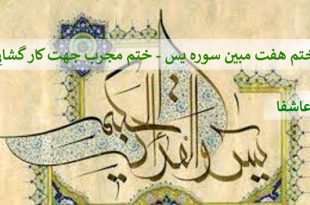 ختم هفت مبین سوره یس - ختم مجرب جهت کار گشایی
عاشفا
یس والقرآن الحکیم